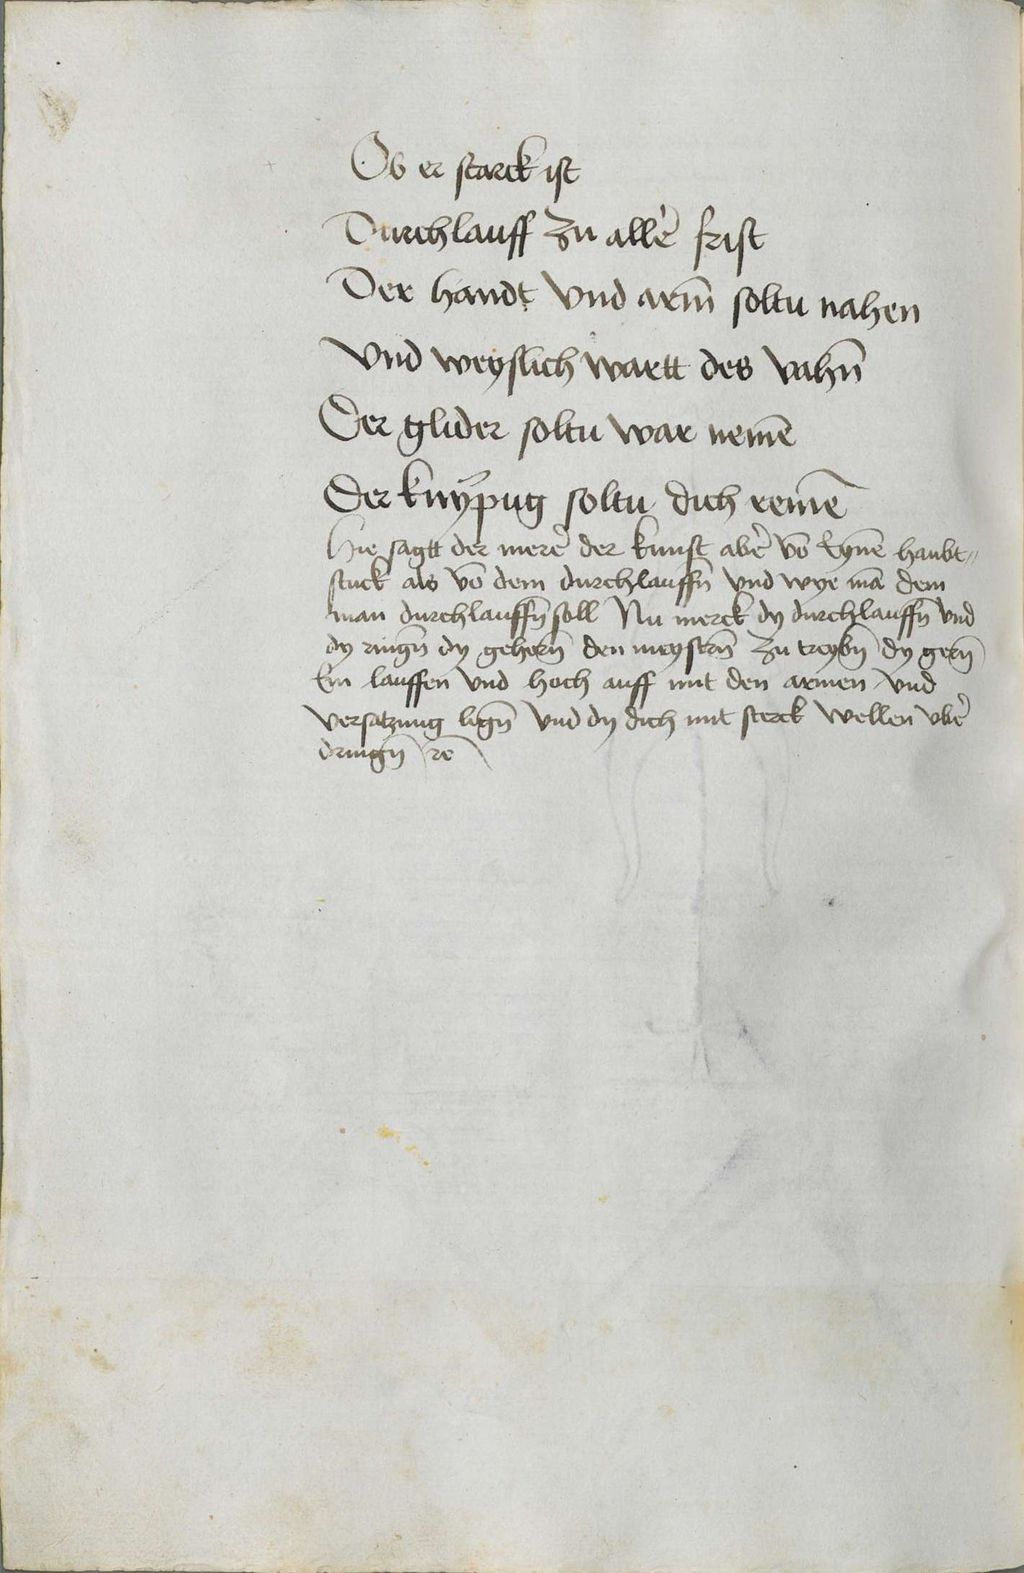 Ob er starck ist
Durchlauff zu allē frist
Der handt vnd arm̄ soltu nahen
Vnd weyslich wartt des vahn̄
Der glider soltu war nemē
Der knÿpug soltu dich remē
Hie sagtt der merē der kunst abē vō Eynē haubt〃
stuck als vō dem durchlauffn̄ vnd wye mā dem
man durchlauffn̄ soll Nu merck dy durchlauffn̄ vnd
dy ringn̄ dy gehorn̄ den meystern̄ zu treybn̄ dy gern̄
Ein lauffen vnd hoch auff mit den armen vnd
versatzung lign̄ vnd dy dich mit sterck wellen vbē
dringn̄ rc